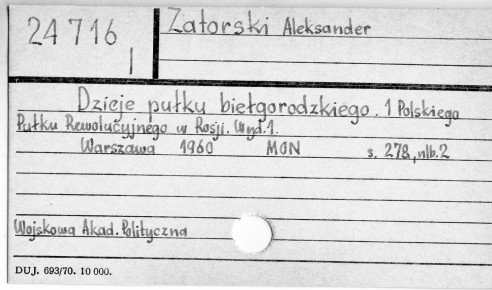 24 716
I
Zatorski Aleksander
Dzieje pułku biełgorodzkiego. 1 Polskiego
Pułku Rewolucyjnego w Rosji. Wyd. 1.
Warszawa 1960 MON s. 278, nlb. 2
Wojskowa Akad. Polityczna
DUJ. 693/70. 10 000.